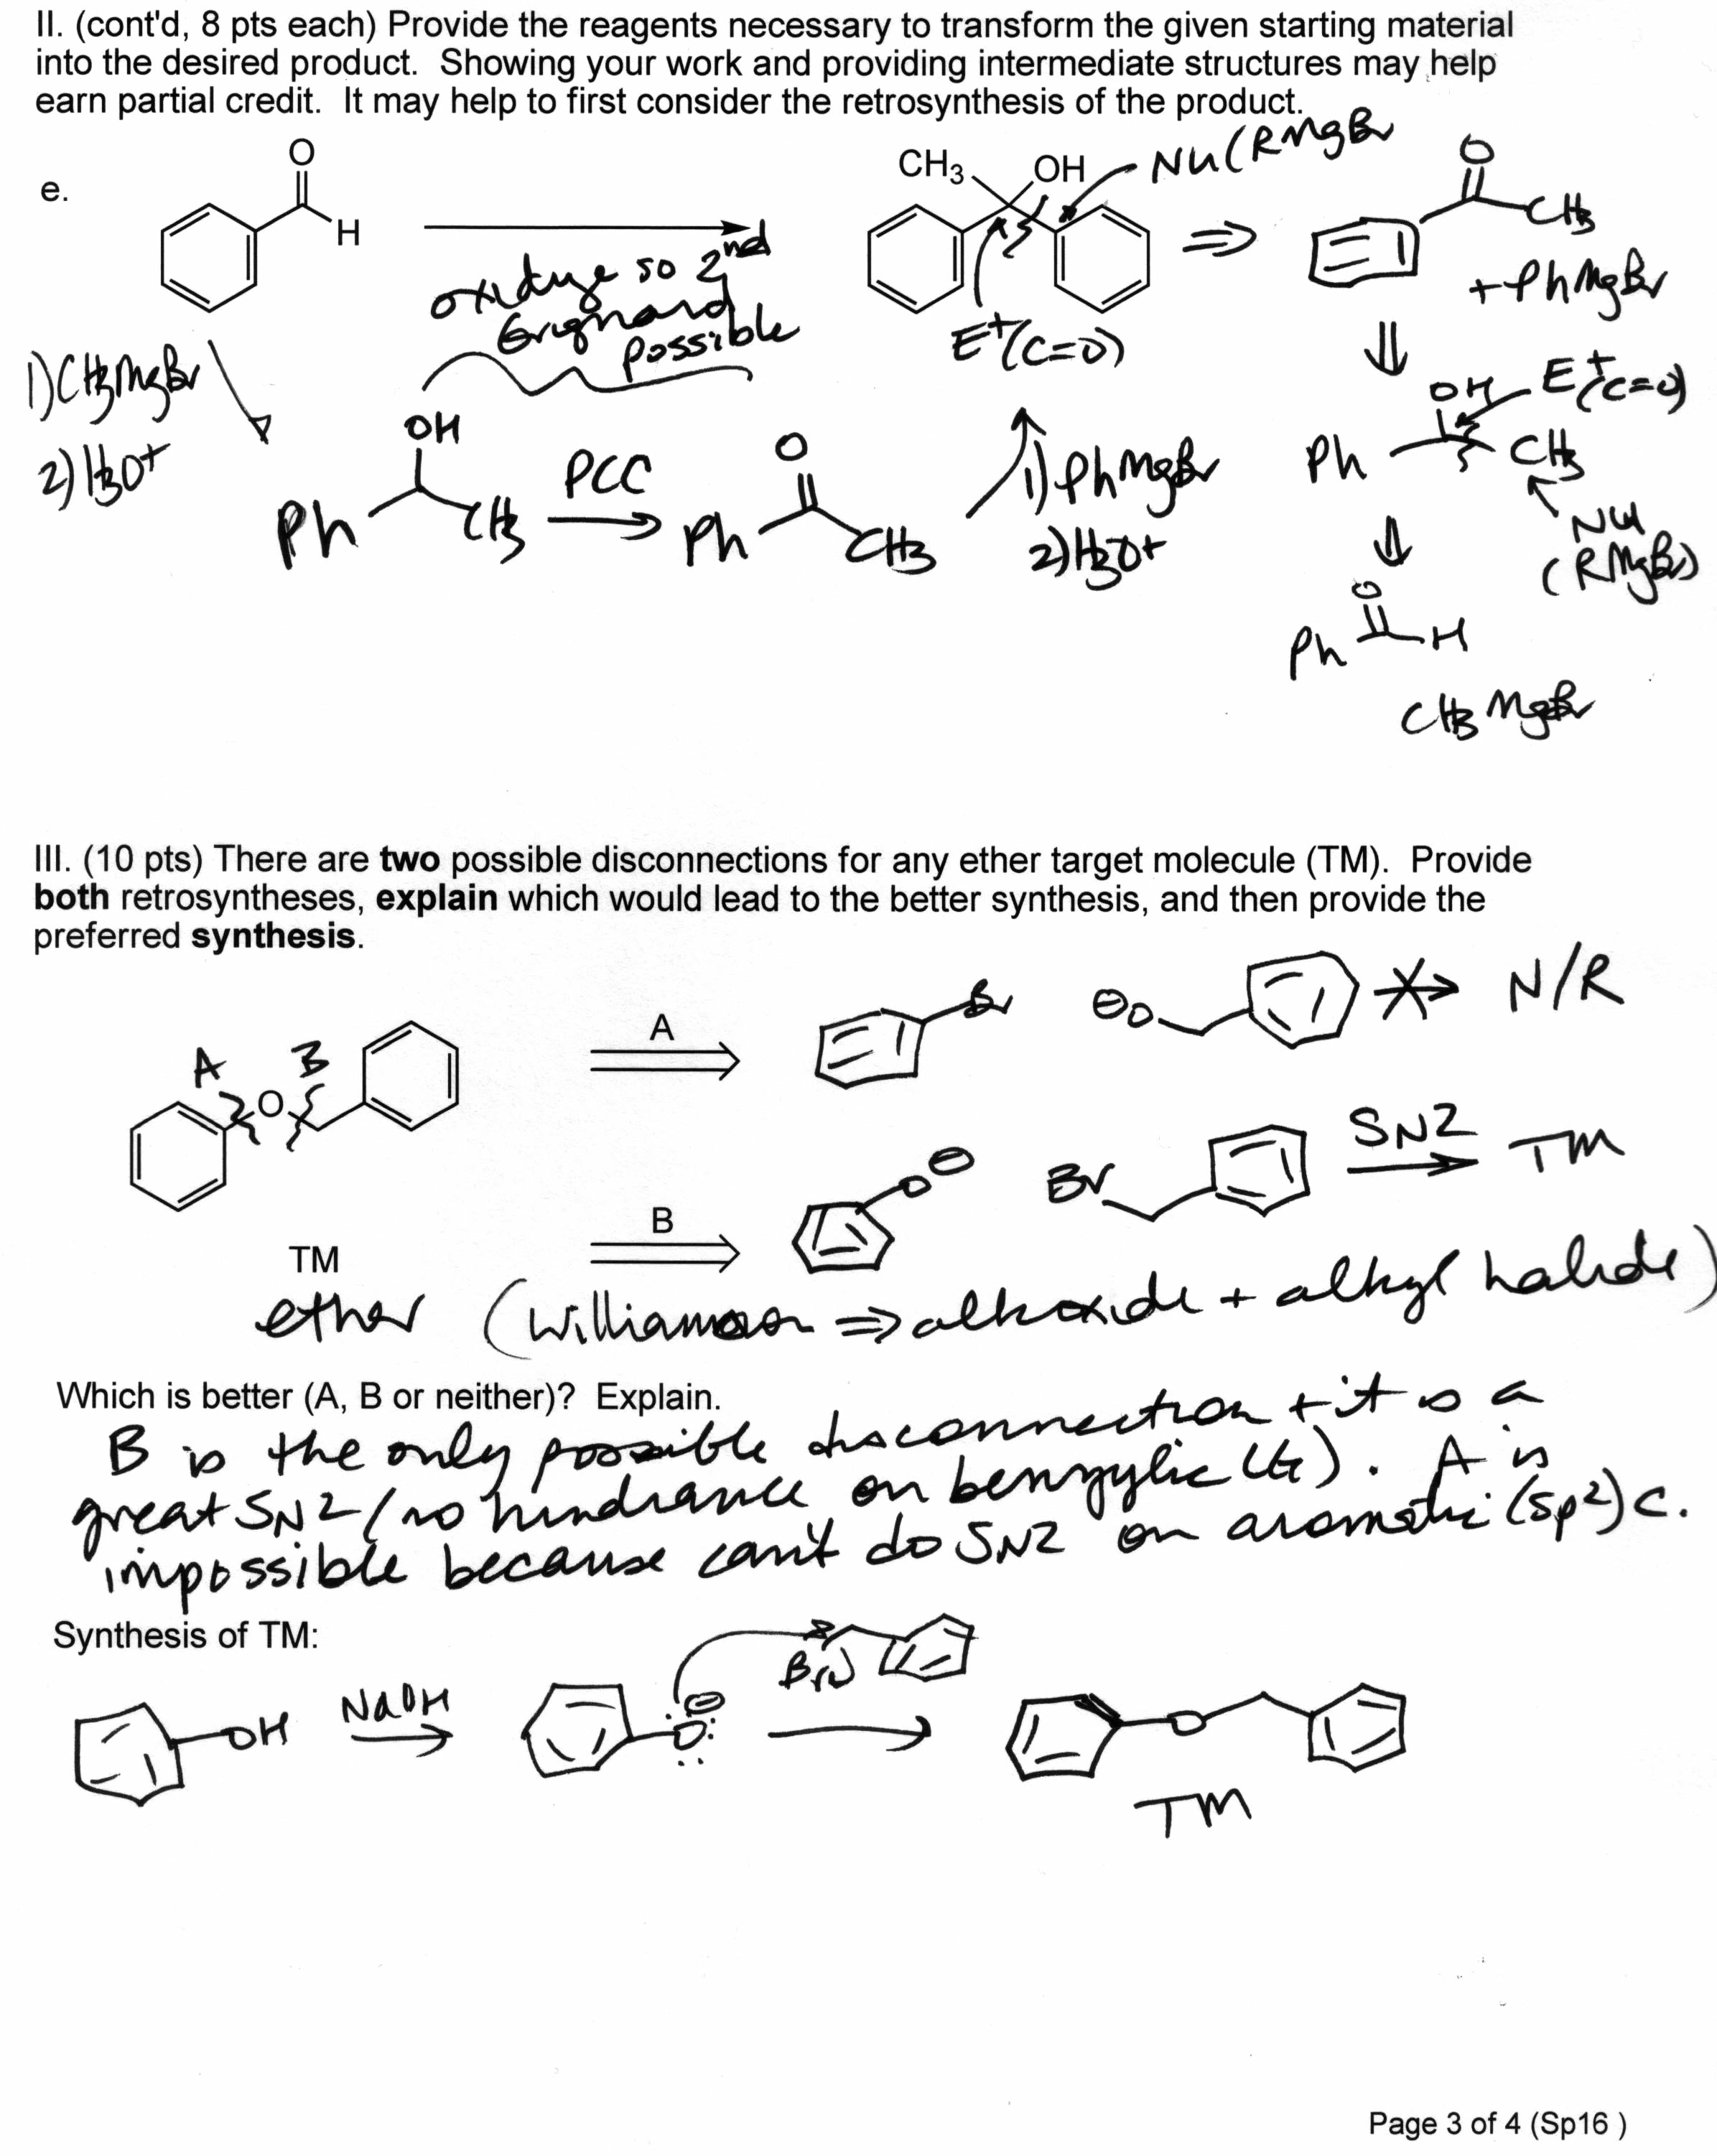 II. (cont'd, 8 pts each) Provide the reagents necessary to transform the given starting material
into the desired product.  Showing your work and providing intermediate structures may help
earn partial credit.  It may help to first consider the retrosynthesis of the product.
e.
O
H
CH3
OH
Nu(RMgBr
O
CH3
+PhMgBr
oxidize so 2nd
Grignard
possible
E+(C=O)
1)CH3MgBr
2)H3O+
OH
Ph
CH3
PCC
O
Ph
CH3
1)PhMgBr
2)H3O+
OH
E+(C=O)
Ph
CH3
Nu
(RMgBr)
O
Ph
H
CH3MgBr
III. (10 pts) There are two possible disconnections for any ether target molecule (TM).  Provide
both retrosyntheses, explain which would lead to the better synthesis, and then provide the
preferred synthesis.
A
B
O
A
Br
⊖O
N/R
B
O⊖
Br
SN2
TM
TM
ether (Williamson ⇒ alkoxide + alkyl halide)
Which is better (A, B or neither)?  Explain.
B is the only possible disconnection + it is a
great SN2 (no hindrance on benzylic C). A is
impossible because can't do SN2 on aromatic (sp2) C.
Synthesis of TM:
OH
NaOH
O⊖
Br
O
TM
Page 3 of 4 (Sp16 )